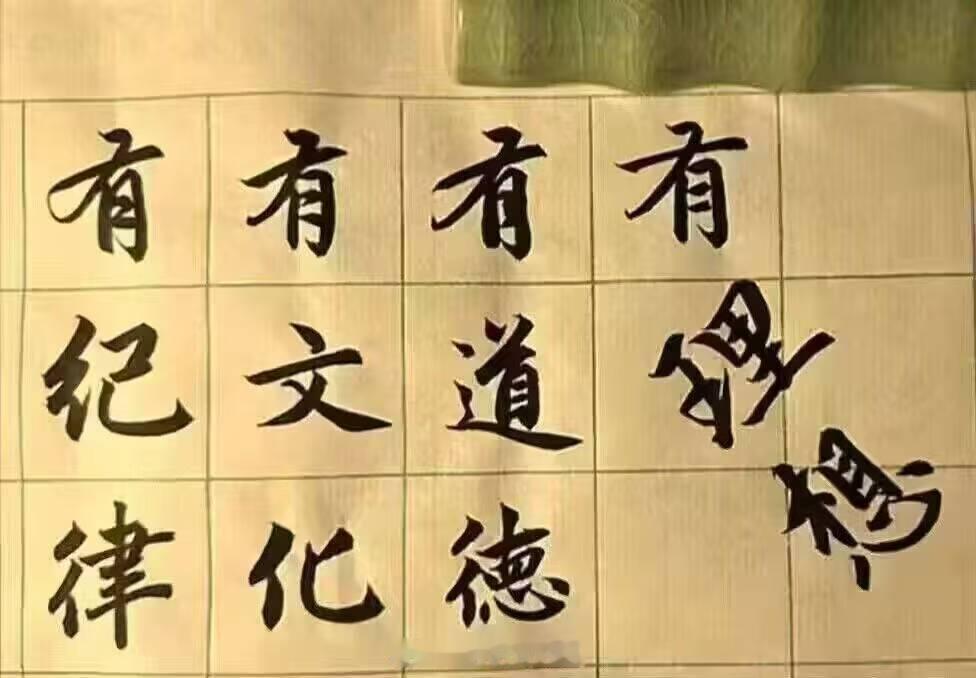 有理想
有道德
有文化
有纪律